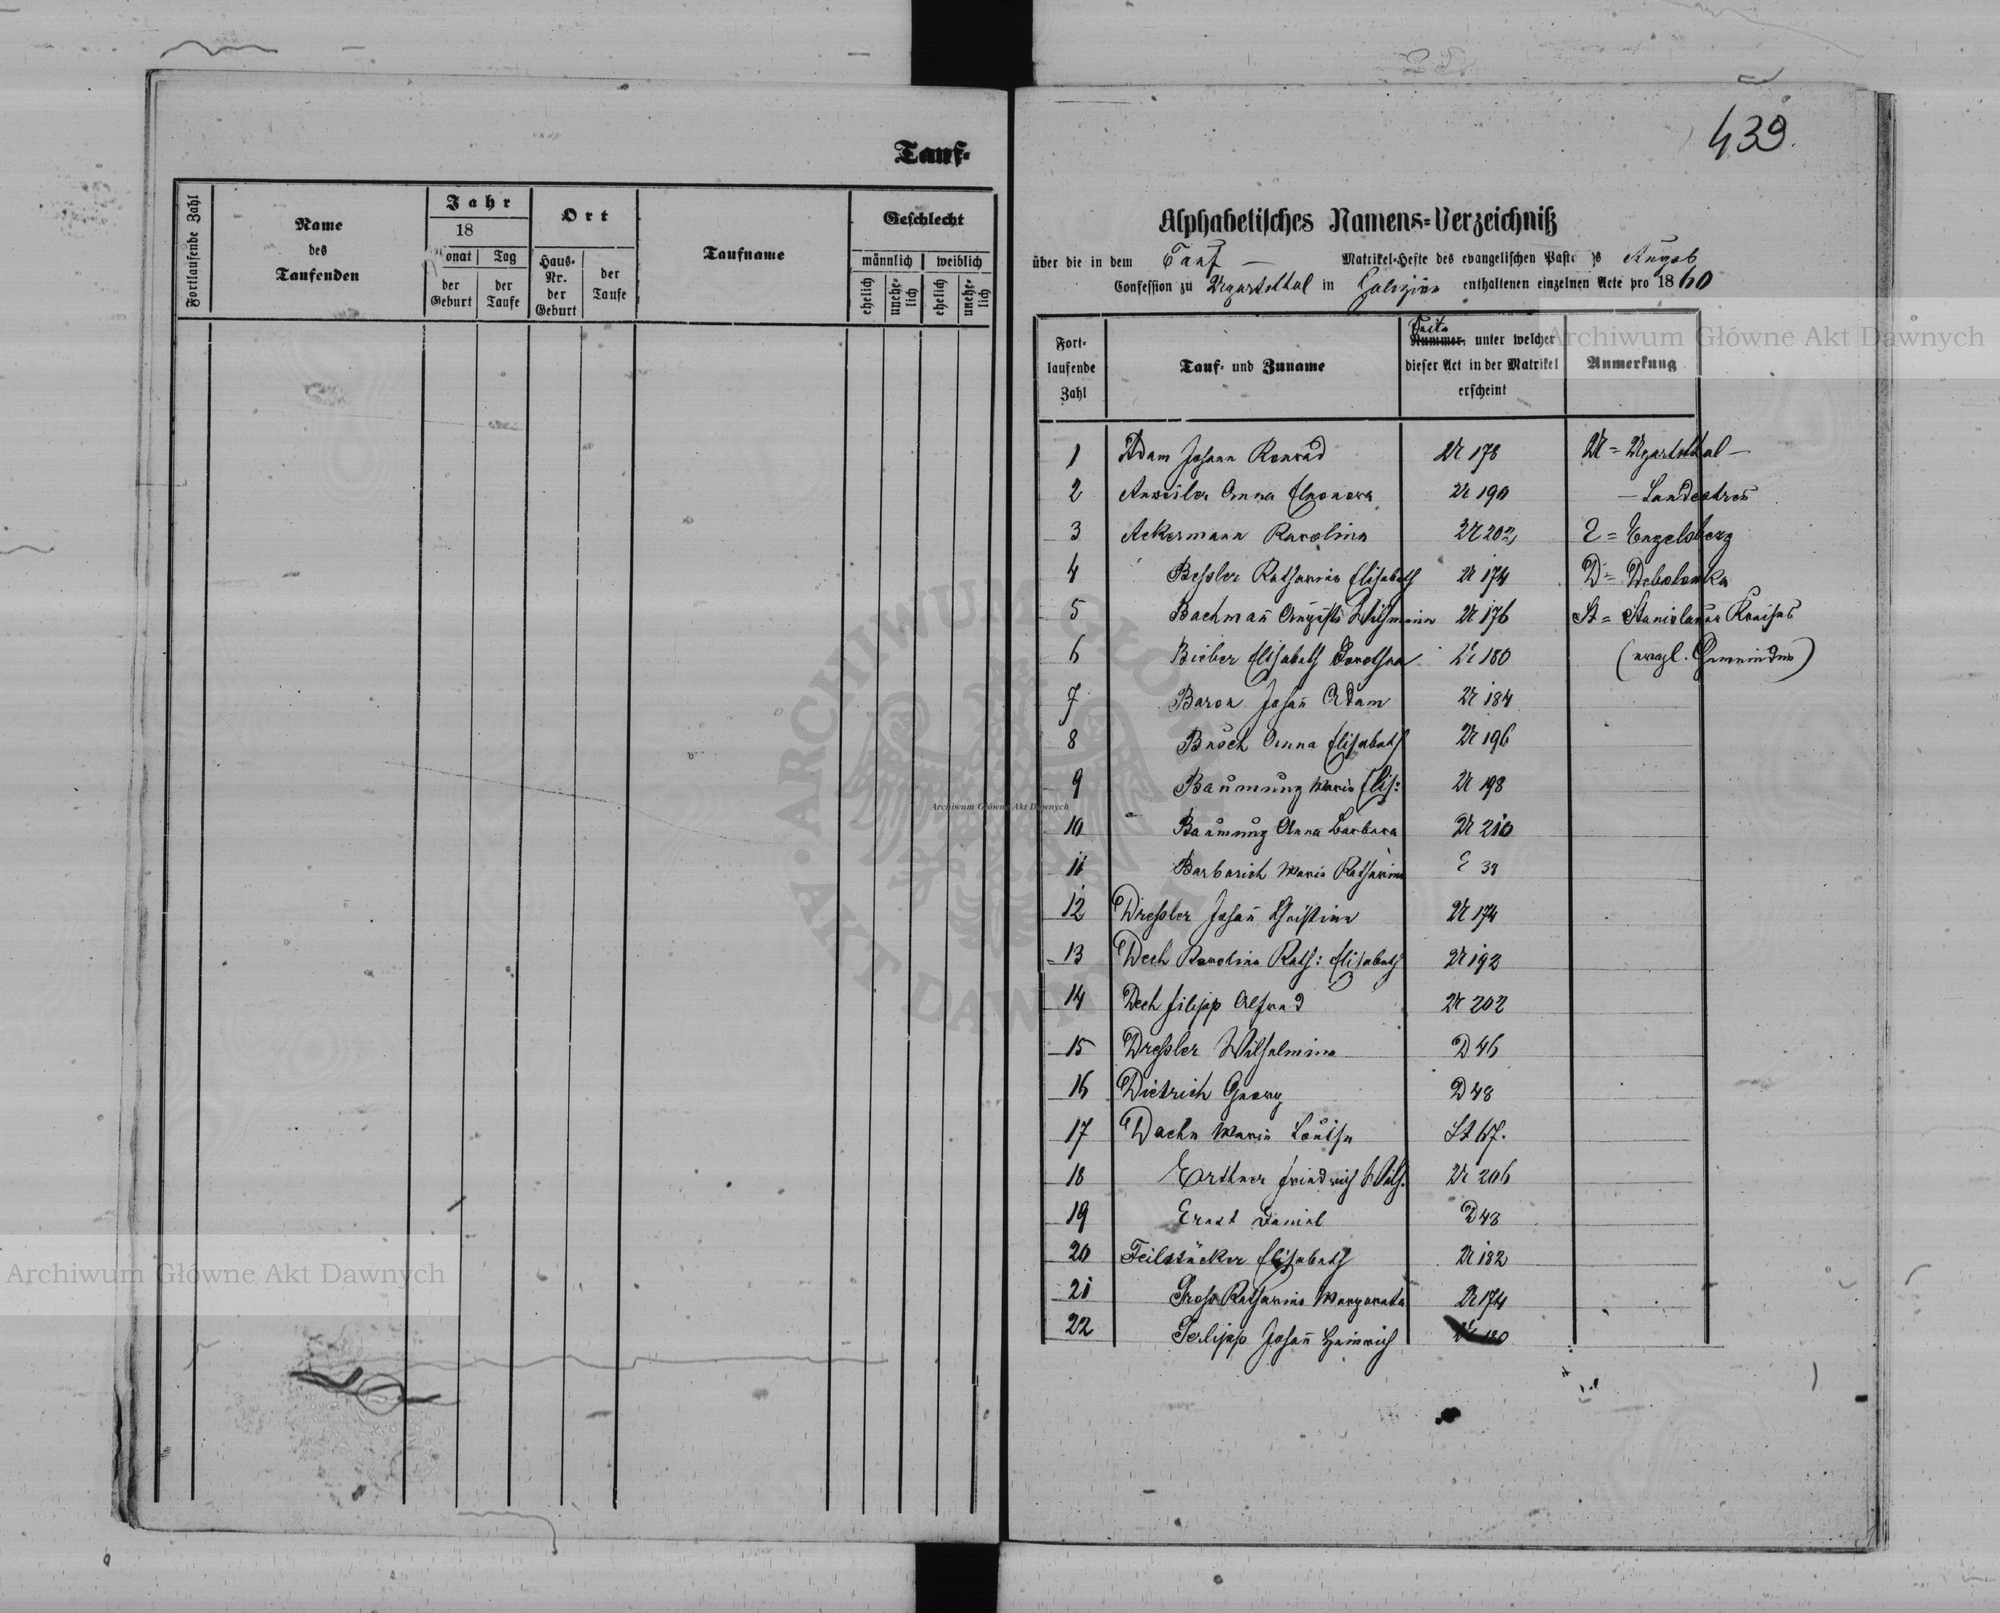 Tauf-
Fortlaufende Zahl
Name
des
Taufenden
Jahr
18
Monat Tag
der Geburt
der Taufe
Ort
Haus-Nr. der Geburt
der Taufe
Taufname
Geschlecht
männlich weiblich
ehelich unehelich ehelich unehelich
439.
Alphabetisches Namens-Verzeichniß
über die in dem Tauf — Matrikel-Hefte des evangelischen Augsb
Confession zu Ugartsthal in Galizien enthaltenen einzelnen Acte pro 1860
Fort-
laufende
Zahl
Tauf- und Zuname
Nummer, unter welcher
dieser Act in der Matrikel
erscheint
Anmerkung
1 Adam Johann Konrad U 178 U = Ugartsthal —
2 Anweiler Anna Eleonora U 190 — Landestreu
3 Ackermann Karolina U 202 E = Engelsberg
4 Beßler Katharina Elisabeth U 174 D =
5 Bachmañ Wilhmina U 176 St = Stanislauer Kreises
6 Bieber Elisabeth Dorothea U 180 (evagl. Gemeinden)
7 Baron Johañ Adam U 184
8 Busch Anna Elisabeth U 196
9 Baumung Maria Elis: U 198
10 Baumung Anna Barbara U 210
11 Barbarich Maria Katharina E 38
12 Dreßler Johañ Christian U 174
13 Dech Karolina Kath: Elisabeth U 192
14 Dech Filipp Alfred U 202
15 Dreßler Wilhelmina D 46
16 Dietrich Georg D 48
17 Maria Louisa St 67.
18 Ortner Friedrich Wilh. U 206
19 Ernst Daniel D 48
20 Feilstäcker Elisabeth U 182
21 Groß Katharina Margareta U 174
22 Gerlipp Johañ Heinrich U 180
Archiwum Główne Akt Dawnych
Archiwum Główne Akt Dawnych
Archiwum Główne Akt Dawnych
ARCHIWUM GŁÓWNE AKT DAWNYCH